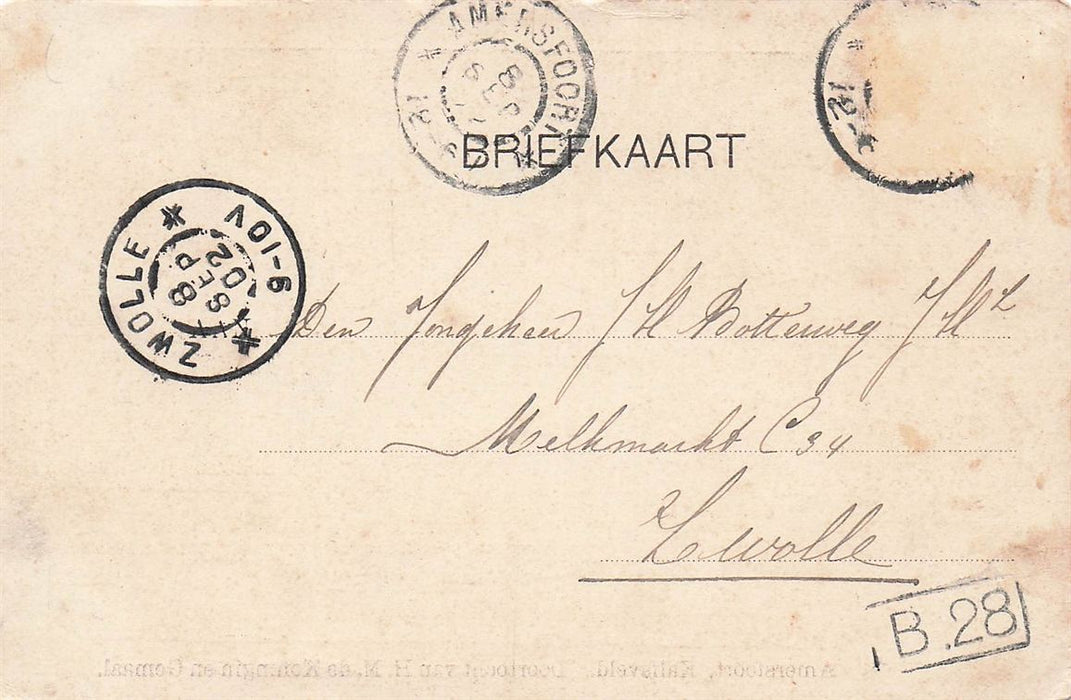 AMERSFOORT
8 SEP
BRIEFKAART
12
ZWOLLE
8 SEP 02
9-10V
Den Jongeheer J H Botterweg JHz
Melkmarkt C 34
Zwolle
B.28
Amersfoort, Kalisveld. Doortocht van H. M. de Koningin en Gemaal.